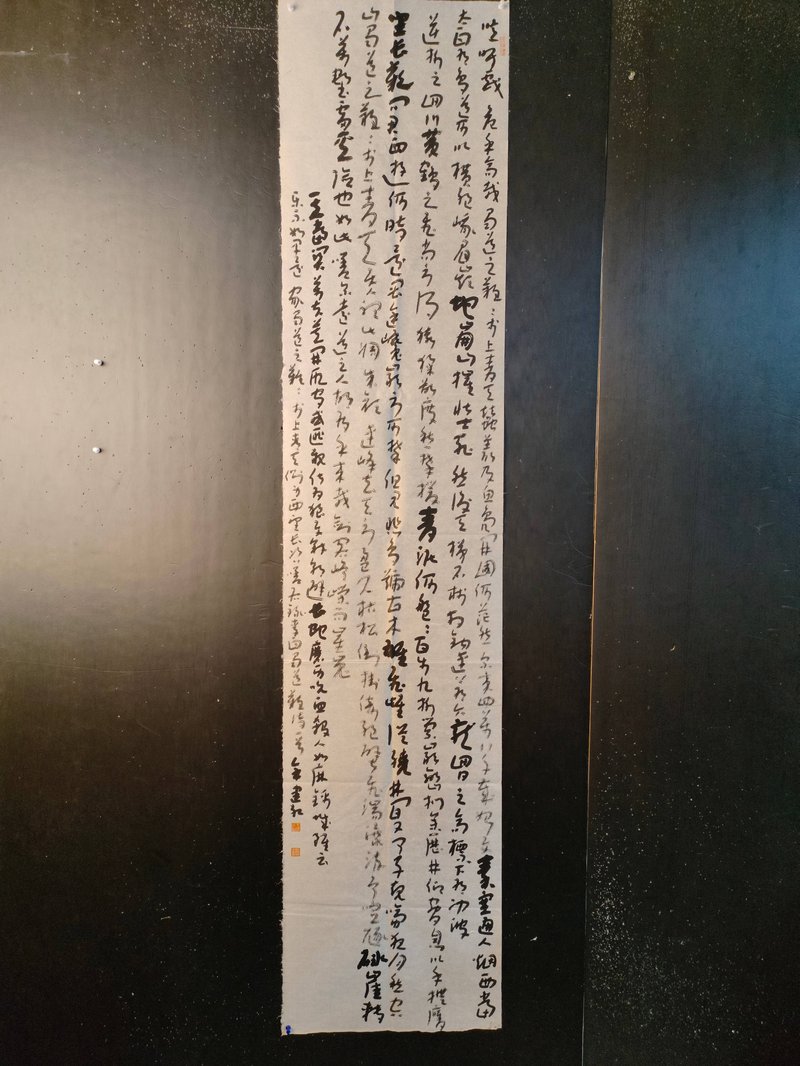 噫吁戲危乎高哉蜀道之難〻於上青天蠶叢及魚鳧開國何茫然爾來四萬八千歲始與秦塞通人烟西當
太白有鳥道可以横絶峨眉巔地崩山摧壯士死然後天梯石棧相鈎連上有六龍回日之高標下有冲波
逆折之回川黄鶴之飛尚不得猿猱欲度愁攀援青泥何盤〻百步九折縈巖巒捫參歷井仰脅息以手撫膺
坐長歎問君西遊何時還畏途巉巖不可攀但見悲鳥號古木雄飛雌從繞林間又聞子規啼夜月愁空
山蜀道之難〻於上青天使人聽此凋朱顔連峰去天不盈尺枯松倒挂倚絶壁飛湍瀑流争喧豗砯崖轉
石萬壑雷其險也如此嗟爾遠道之人胡爲乎來哉劍閣崢嶸而崔嵬
一夫當關萬夫莫開所守或匪親化爲狼與豺朝避長蛇磨牙吮血殺人如麻錦城雖云
樂不如早還家蜀道之難〻於上青天側身西望長咨嗟 李白蜀道難詩一首